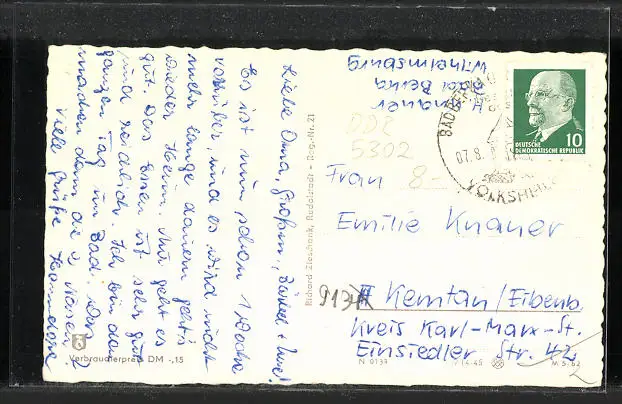 Liebe Oma, Großm, Bärbel + Inge!
Es ist nun schon 1 Woche
vorüber, und es wird nicht
mehr lange dauern geht's
wieder Heim. Mir geht es
gut. Das Essen ist sehr gut
und reichlich. Ich bin den
ganzen Tag im Bad. Was
machen denn die 2 Nasen?
Viele Grüße Hannelore
Verbraucherpreis DM -,15
Richard Zieschank, Rudolstadt - Reg.-Nr. 21
H. Knauer
Bad Berka
Wilhelmsburg
DDR
5302
8-
BAD BERKA
07.8.
VOLKSHEIL
10
DEUTSCHE
DEMOKRATISCHE REPUBLIK
Frau
Emilie Knauer
9134
Kemtau/Eibenb.
Kreis Karl-Marx-St.
Einsiedler Str. 42
N 0139
14-45
M 5.62
2